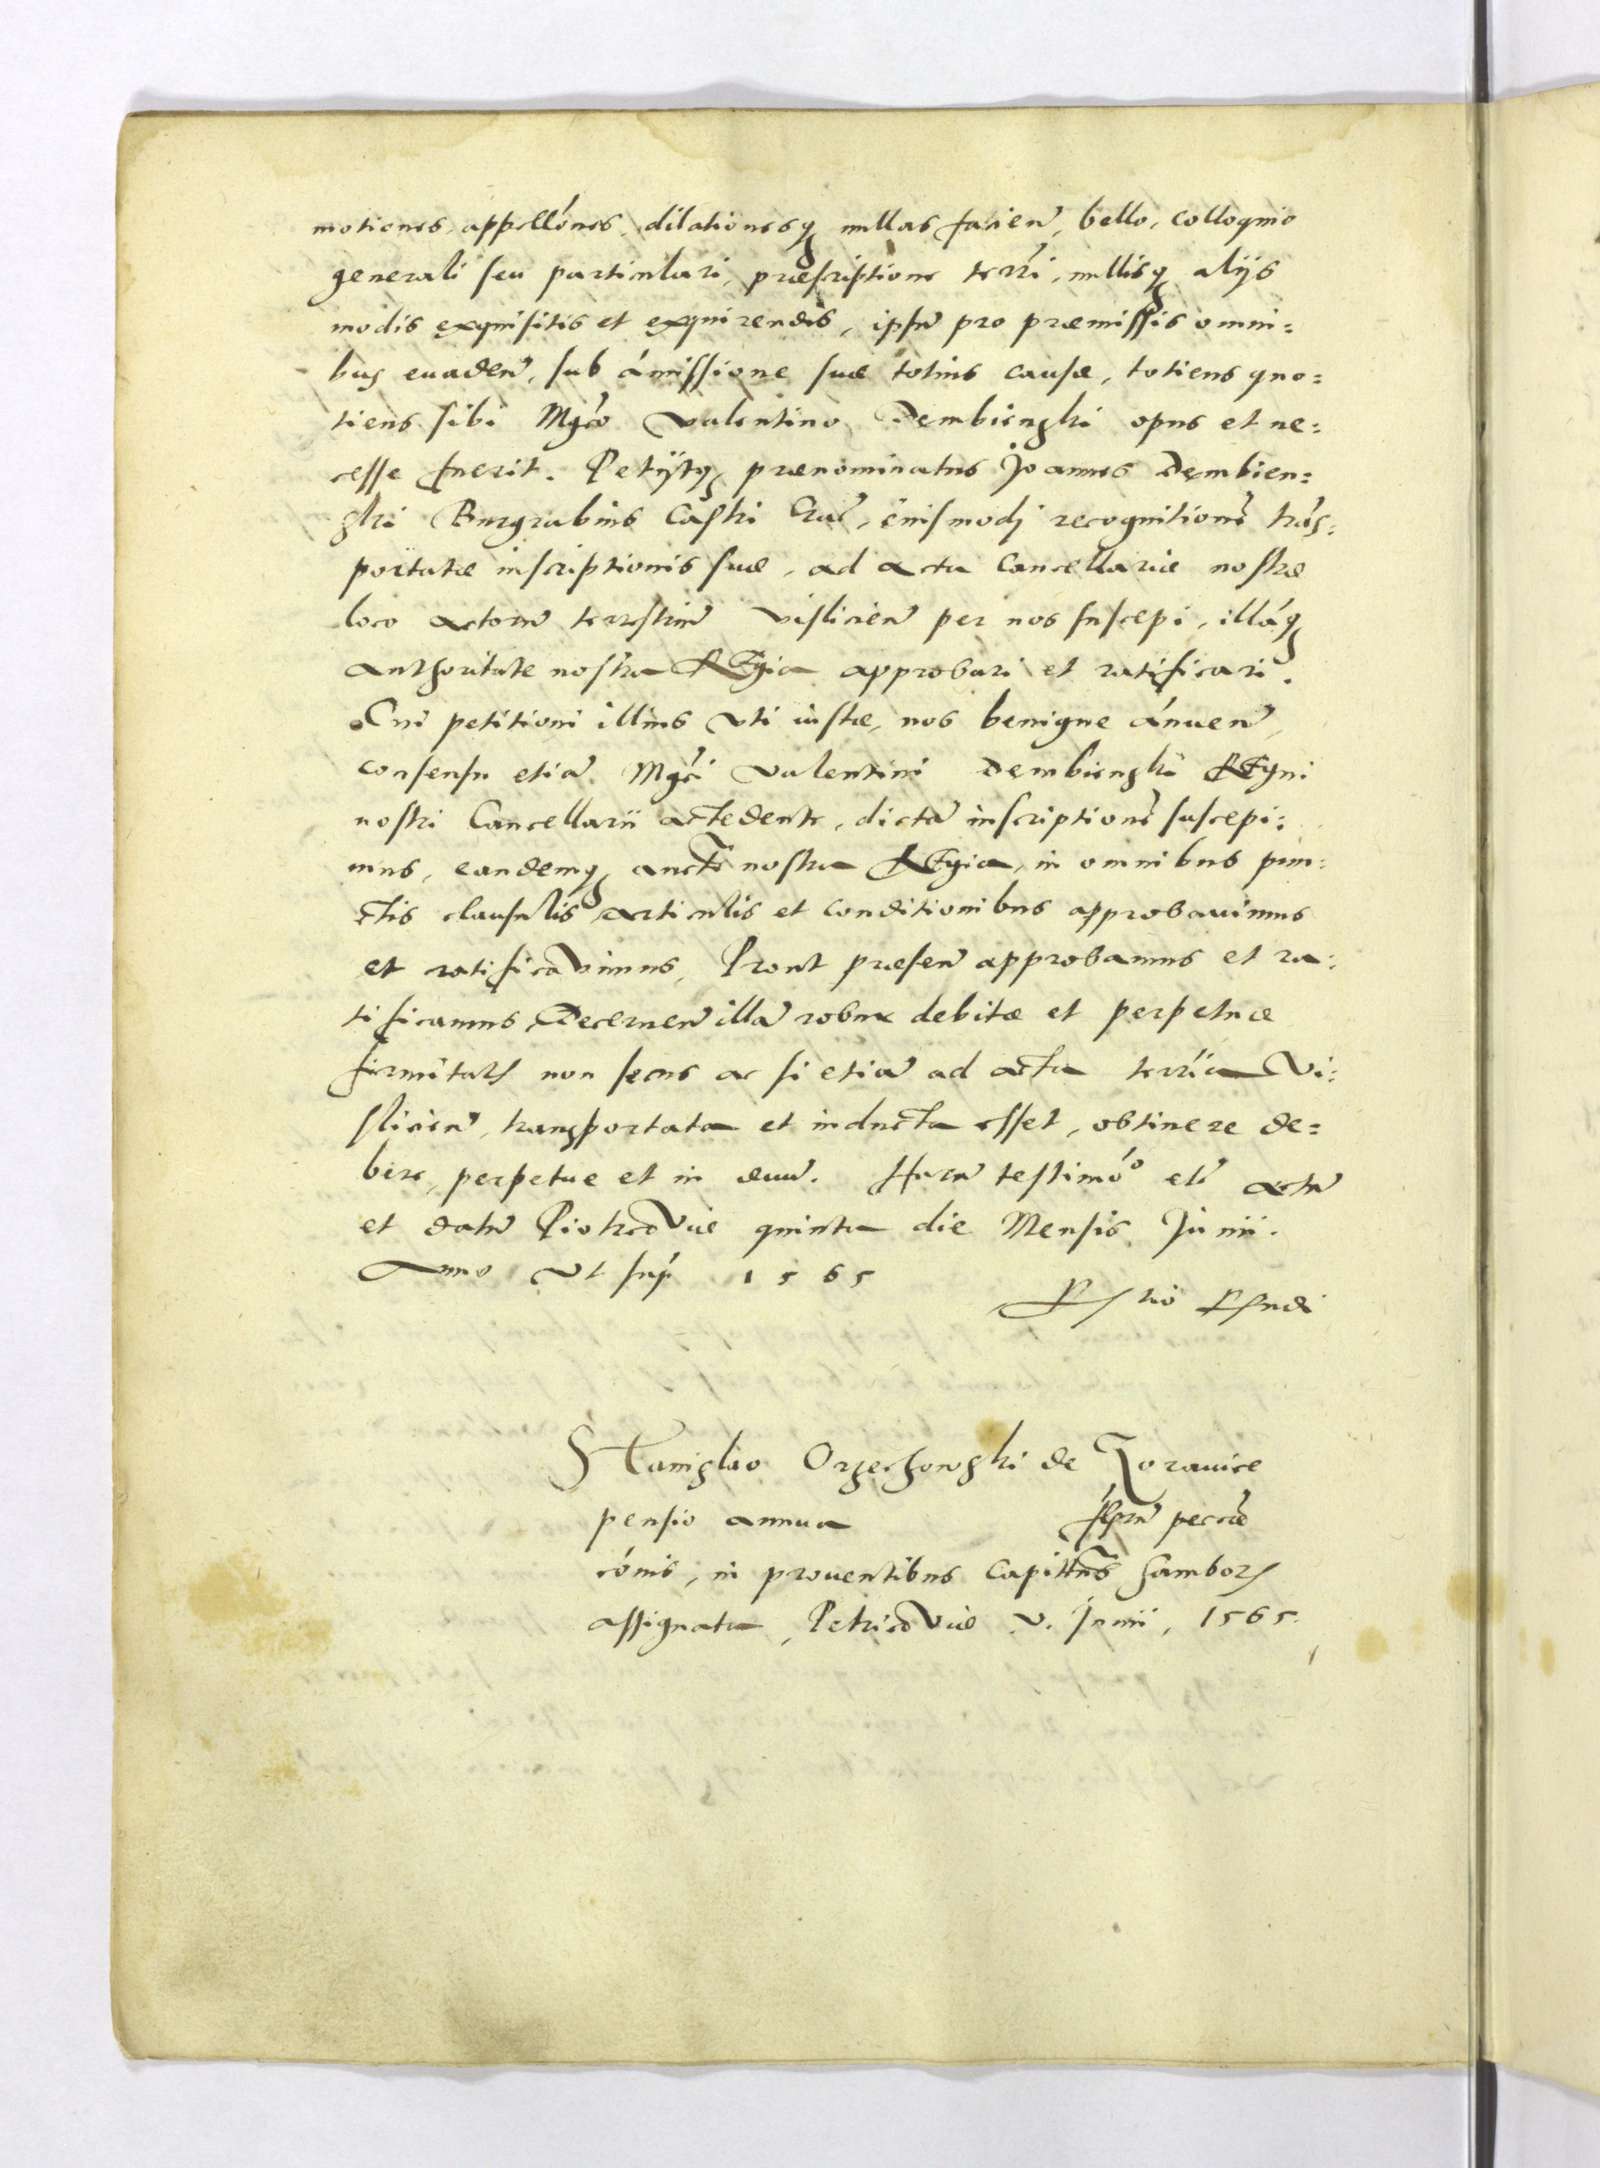 motiones, appellónes, dilationesq nullas facien, bello, colloquio
generali seu particulari, præscriptione terri, nullisq alijs
modis exquisitis et exquirendis, ipsum pro præmissis omni=
bus evaden, sub ámissione suæ totius causæ, totiens quo=
tiens sibi Mgco Valentino Dembienski opus et ne=
cesse fuerit. Petijtq prænominatus Joannes Dembien=
ski Burgrabius Castri Crac, eiusmodi recognitione trás=
portatæ inscriptionis suæ, ad acta Cancellariæ nostræ
loco actorum terrestrium Vislicien per nos suscepi, illáq
authoritate nostra Regia approbari et ratificari.
Cui petitioni illius uti iustæ, nos benigne ánuen,
consensu etia Mgci Valentini Dembienski Regni
nostri Cancellarii accedente, dicta inscriptione suscepi:
mus, eandemq aucte nostra Regia, in omnibus pun:
ctis clausulis articulis et conditionibus approbavimus
et ratificavimus, Prout præsen approbamus et ra:
tificamus, Decernen illa robur debitæ et perpetuæ
firmitatis non secus ac si etia ad acta terria Vi:
slicien, transportata et inducta esset, obtinere de=
bere, perpetue et in ævu. Harum testimóo etc acta
et datum Piotrcoviæ quinta die Mensis Junii.
Anno ut sup 1565
Stanislao Orzechowski de Zoravice
pensio annua
cónis, in proventibus Capittus Sambor
assignata, Petricoviæ V. Junii, 1565.